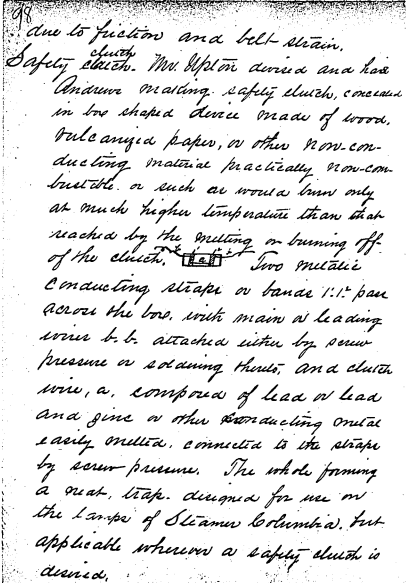 98
due to friction and belt strain.
Safety clutch. Mr. Upton devised and has
Andrews making safety clutch, concealed
in box shaped device made of wood,
vulcanized paper, or other non-con-
ducting material practically non-com-
bustible. or such as would burn only
at much higher temperature than that
reached by the melting or burning off
of the clutch. a Two metalic
conducting straps or bands 1.1. pass
across the box, with main or leading
wires b.b. attached either by screw
pressure or soldering thereto, and clutch
wire, a, composed of lead or lead
and zinc or other conducting metal
easily melted, connected to the straps
by screw pressure. The whole forming
a neat, trap. designed for use on
the lamps of Steamer Columbia, but
applicable wherever a safety clutch is
desired.